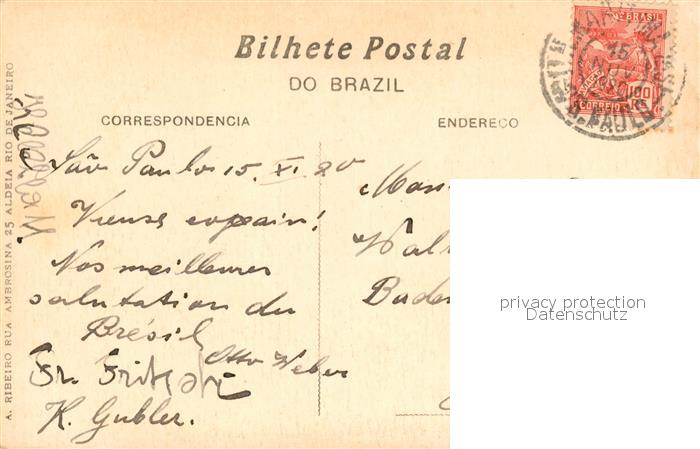 Bilhete Postal
DO BRAZIL
CORRESPONDENCIA
ENDEREÇO
A. RIBEIRO RUA AMBROSINA 25 ALDEIA RIO DE JANEIRO
BRASIL
CORREIO
100
RS
15
NOV
S. PAULO
São Paulo 15. XI. 20
Vieux copain!
Nos meilleures
salutation du
Brésil
Otto Weber
Fr.
K. Gubler.
Mons
Wal
Bade
privacy protection
Datenschutz